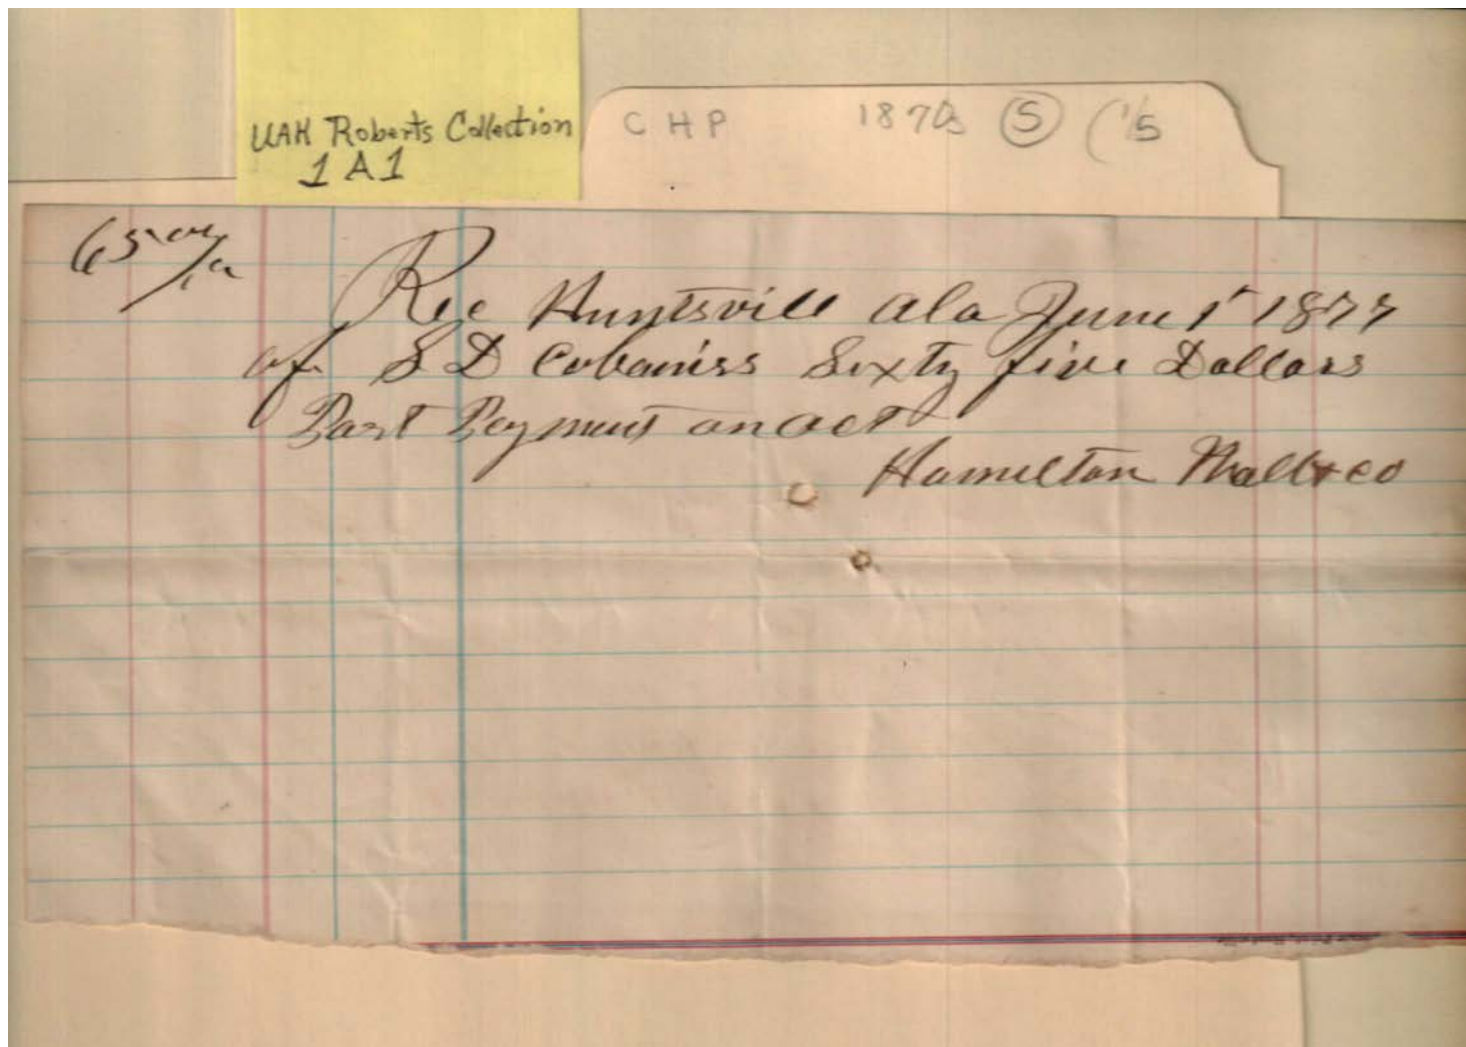 UAH Roberts Collection
1 A 1
CHP 1870s (5) (1/5
65 00/100
Rec Huntsvill Ala June 1st 1877
of S D Cabaniss Sixty five Dollars
Part Payment on act
Hamilton & Co